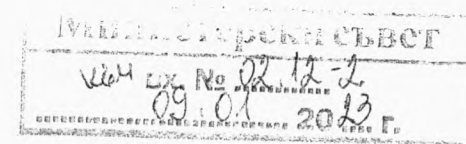 Министерски съвет
към вх. № 02.12-2
09.01 2023 г.